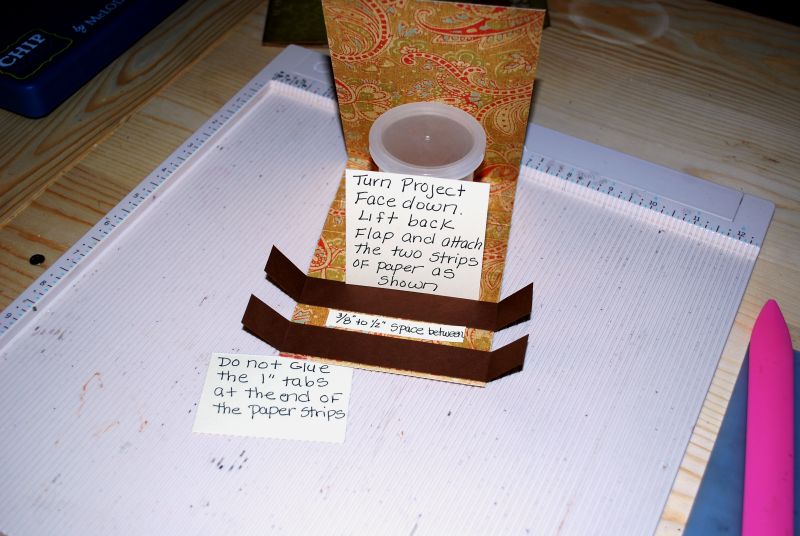 CHIP
Turn Project
Face down.
Lift back
Flap and attach
the two strips
of paper as
shown
3/8" to 1/2" Space between
Do not Glue
the 1" tabs
at the end of
the paper strips